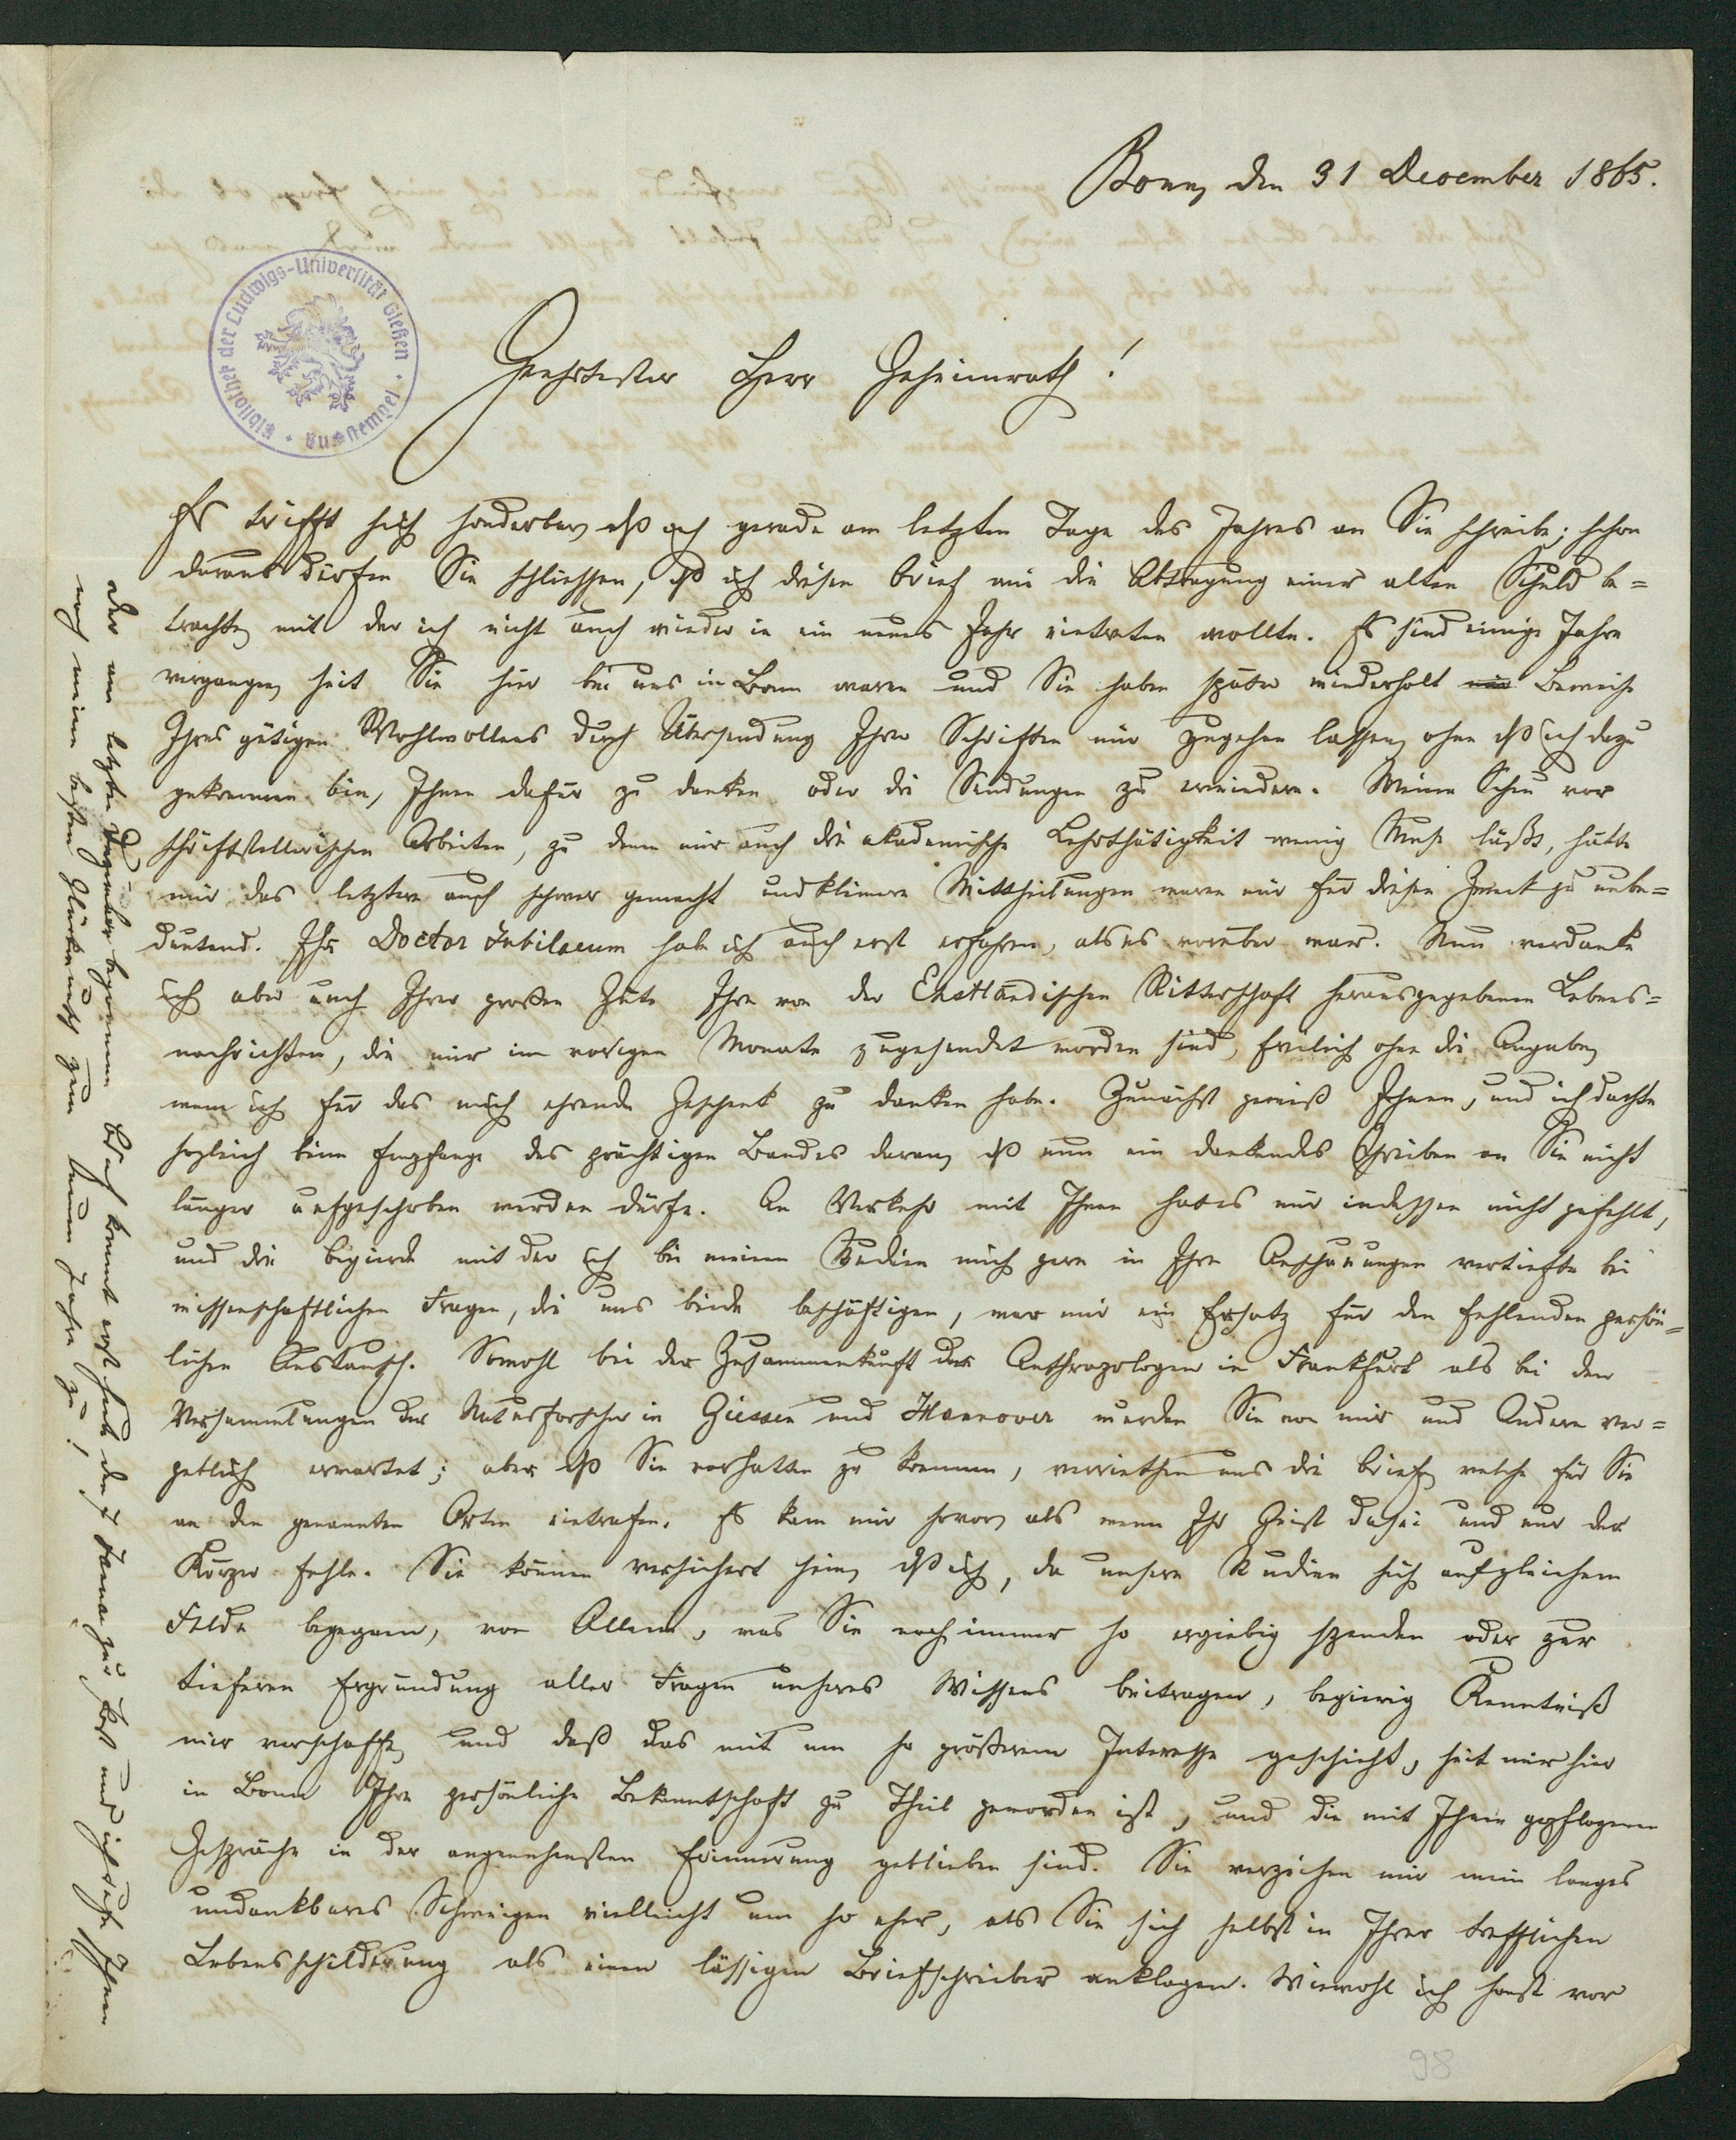 Bonn, den 31 December 1865.
Bibliothek der Ludwigs-Universität Gießen
Geehrtester Herr Geheimrath!
Es trifft sich sonderbar, dß ich gerade am letzten Tage des Jahres an Sie schreibe; schon
daraus dürfen Sie schliessen, dß ich diesen Brief wie die Abtragung einer alten Schuld be=
trachte, mit der ich nicht auch wieder in ein neues Jahr eintreten wollte. Es sind einige Jahre
vergangen, seit Sie hier bei uns in Bonn waren und Sie haben später wiederholt Beweise
Ihres gütigen Wohlwollens durch Übersendung Ihrer Schriften mir zugehen lassen, ohne dß ich dazu
gekommen bin, Ihnen dafür zu danken oder die Sendungen zu erwiedern. Meine Scheu vor
schriftstellerischen Arbeiten, zu denen mir auch die akademische Lehrthätigkeit wenig Muse läßt, hatte
mir das letztere auch schwer gemacht und kleinere Mittheilungen waren mir für diesen Zweck zu unbe=
deutend. Ihr Doctor Jubilaeum habe ich auch erst erfahren, als es vorüber war. Nun verdanke
ich aber auch Ihrer großen Güte Ihre von der Ehstländischen Ritterschaft herausgegebenen Lebens=
nachrichten, die mir im vorigen Monate zugesendet worden sind, freilich ohne die Angabe,
wem ich für das mich ehrende Geschenk zu danken habe. Zunächst gewiß Ihnen, und ich dachte
sogleich beim Empfange des prächtigen Bandes daran, dß nun ein dankendes Schreiben an Sie nicht
länger aufgeschoben werden dürfe. An Verkehr mit Ihnen hat es mir indessen nicht gefehlt,
und die Begierde mit der ich bei meinen Studien mich gern in Ihre Anschauungen vertiefte bei
wissenschaftlichen Fragen, die uns beide beschäftigen, war mir ein Ersatz für den fehlenden persön=
lichen Austausch. Sowohl bei der Zusammenkunft der Anthropologen in Frankfurt als bei den
Versammlungen der Naturforscher in Giessen und Hannover wurden Sie von mir und Andern ver=
geblich erwartet; aber dß Sie vorhatten zu kommen, verriethen uns die Briefe, welche für Sie
an den genannten Orten eintrafen. Es kam mir so vor, als wenn Ihr Geist da sei und nur der
Körper fehle. Sie können versichert sein, dß ich, da unsere Studien sich auf gleichem
Felde begegnen, von Allem, was Sie noch immer so ergiebig spenden oder zur
tieferen Ergründung aller Fragen unseres Wissens beitragen, begierig Kenntniß
mir verschaffe, und daß das mit um so größerem Interesse geschieht, seit mir hier
in Bonn Ihre persönliche Bekanntschaft zu Theil geworden ist, und die mit Ihnen gepflogenen
Gespräche in der angenehmsten Erinnerung geblieben sind. Sie verzeihen mir mein langes
undankbares Schweigen vielleicht um so eher, als Sie sich selbst in Ihrer trefflichen
Lebensschilderung als einen lässigen Briefschreiber anklagen. Wiewohl ich sonst vor
Der am letzten Dezember begonnene Brief kommt erst heute den Januar zur Post und ich rufe Ihnen
noch meine besten Glückwünsche zum neuen Jahre zu!
98